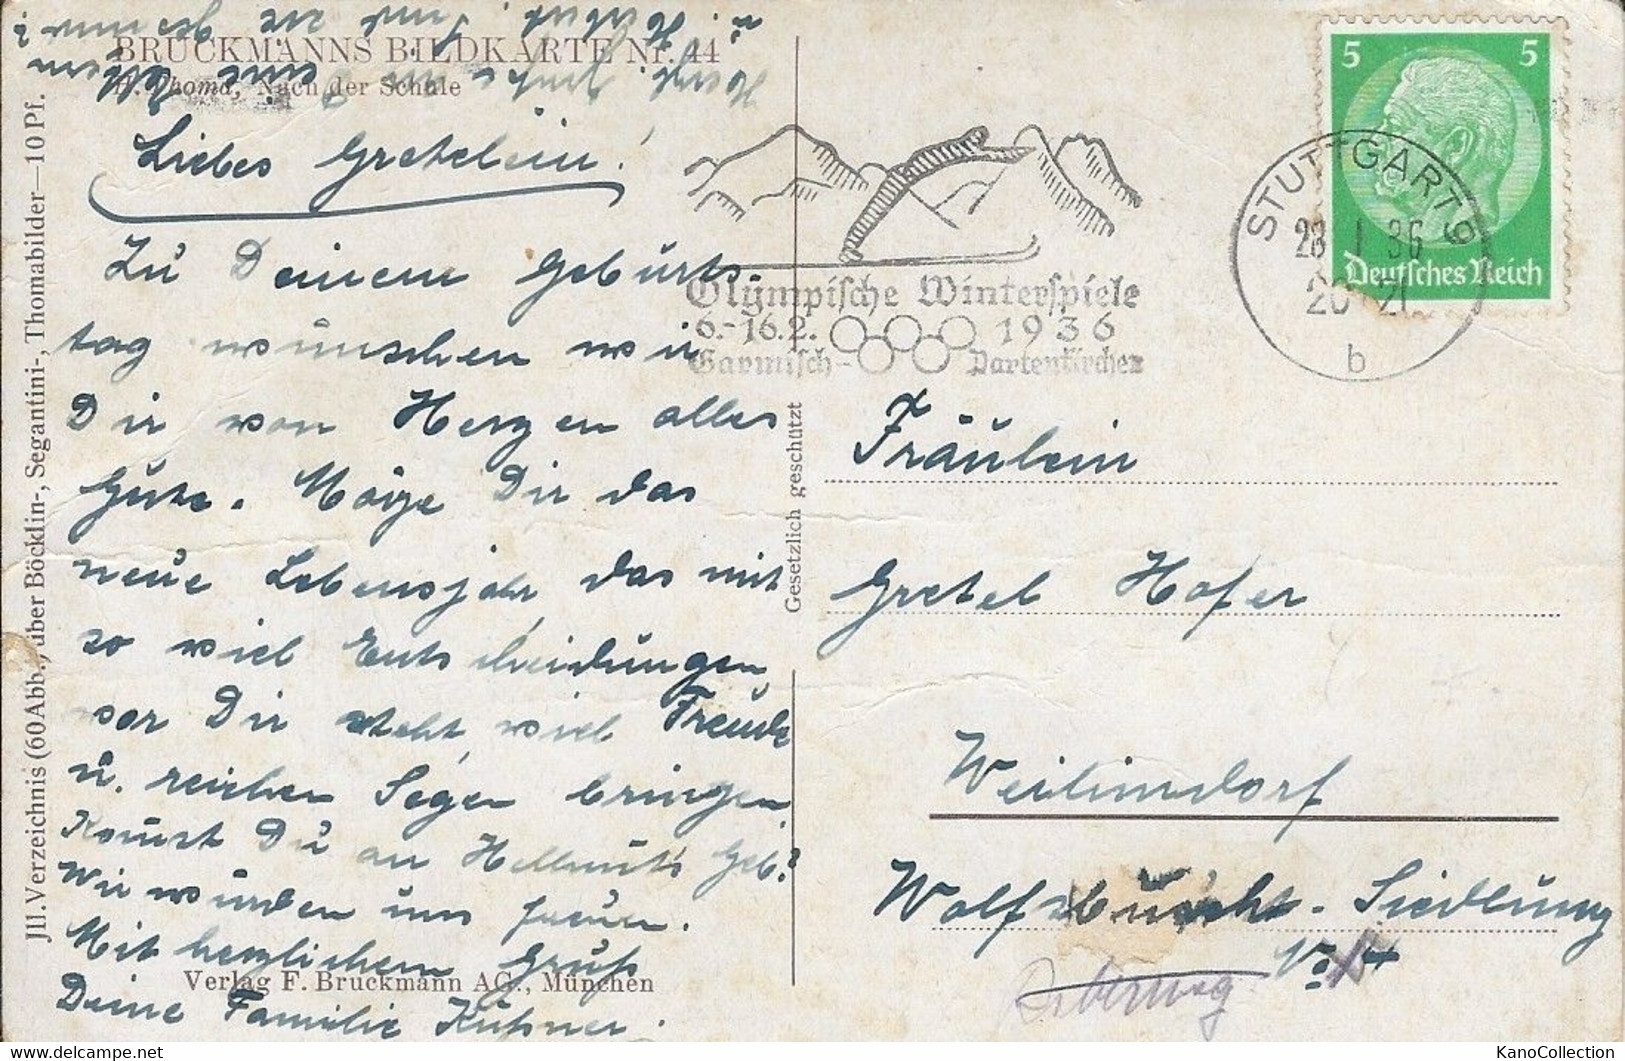 BRUCKMANNS BILDKARTE Nr. 44
H. Thoma, Nach der Schule
Liebes Gretelein!
Zu Deinem Geburts-
tag wünschen wir
Dir von Herzen alles
Gute. Möge Dir das
neue Lebensjahr, das mit
so viel Entscheidungen
vor Dir steht, viel Freude
u. reichen Segen bringen.
Komst Du an Hellmuts Geb.?
Wir würden uns freuen.
Mit herzlichem Gruß
Deine Familie Kühner.
Verlag F. Bruckmann AG., München
Jll. Verzeichnis (60 Abb.) über Böcklin-, Segantini-, Thomabilder—10 Pf.
Gesetzlich geschützt
Olympische Winterspiele
6.-16.2. 1936
Garmisch-Partenkirchen
STUTTGART 9
28.1.36
20-21
b
5 5
Deutsches Reich
Fräulein
Gretel Hofer
Weilimdorf
Wolfbusch-Siedlung
KanoCollection